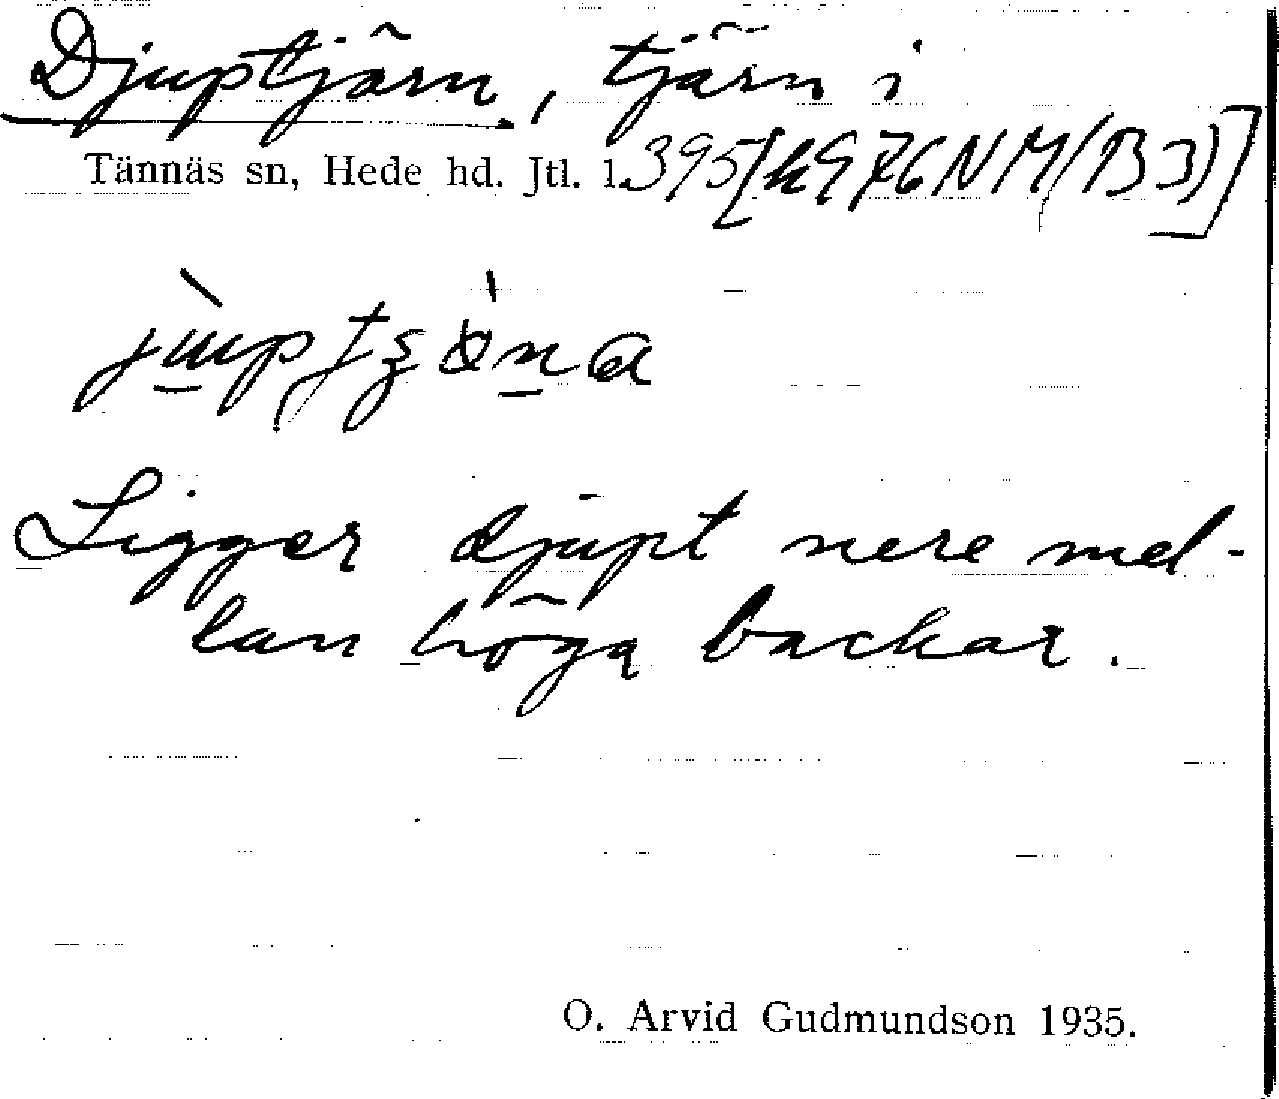 Djuptjärn, tjärn i
Tännäs sn, Hede hd. Jtl. l. 395 [
Ligger djupt nere mel-
lan höga backar.
O. Arvid Gudmundson 1935.